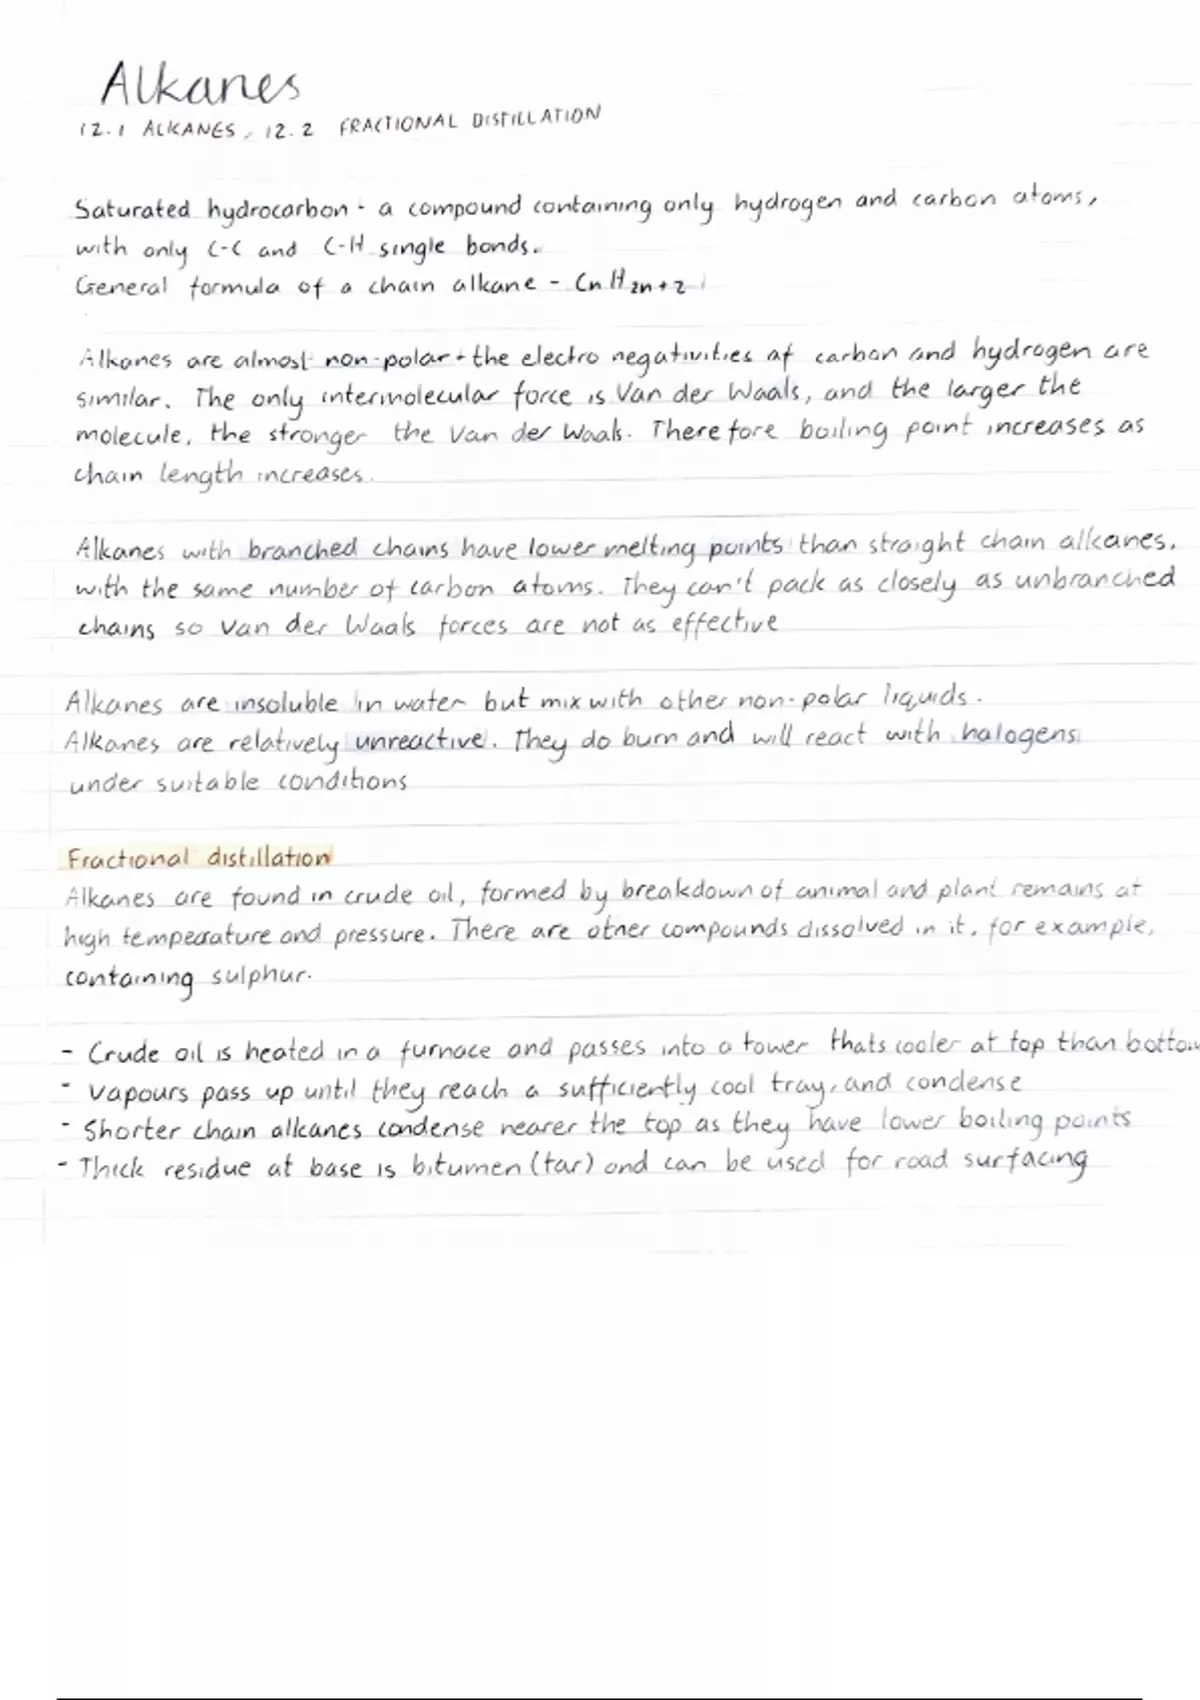 Alkanes
12.1 ALKANES, 12.2 FRACTIONAL DISTILLATION
Saturated hydrocarbon - a compound containing only hydrogen and carbon atoms,
with only C-C and C-H single bonds.
General formula of a chain alkane - CnH2n+2
Alkanes are almost non-polar + the electro negativities of carbon and hydrogen are
similar. The only intermolecular force is Van der Waals, and the larger the
molecule, the stronger the Van der Waals. Therefore boiling point increases as
chain length increases.
Alkanes with branched chains have lower melting points than straight chain alkanes,
with the same number of carbon atoms. They can't pack as closely as unbranched
chains so Van der Waals forces are not as effective
Alkanes are insoluble in water but mix with other non-polar liquids.
Alkanes are relatively unreactive. They do burn and will react with halogens
under suitable conditions
Fractional distillation
Alkanes are found in crude oil, formed by breakdown of animal and plant remains at
high temperature and pressure. There are other compounds dissolved in it, for example,
containing sulphur.
- Crude oil is heated in a furnace and passes into a tower thats cooler at top than bottom
- Vapours pass up until they reach a sufficiently cool tray, and condense
- Shorter chain alkanes condense nearer the top as they have lower boiling points
- Thick residue at base is bitumen (tar) and can be used for road surfacing